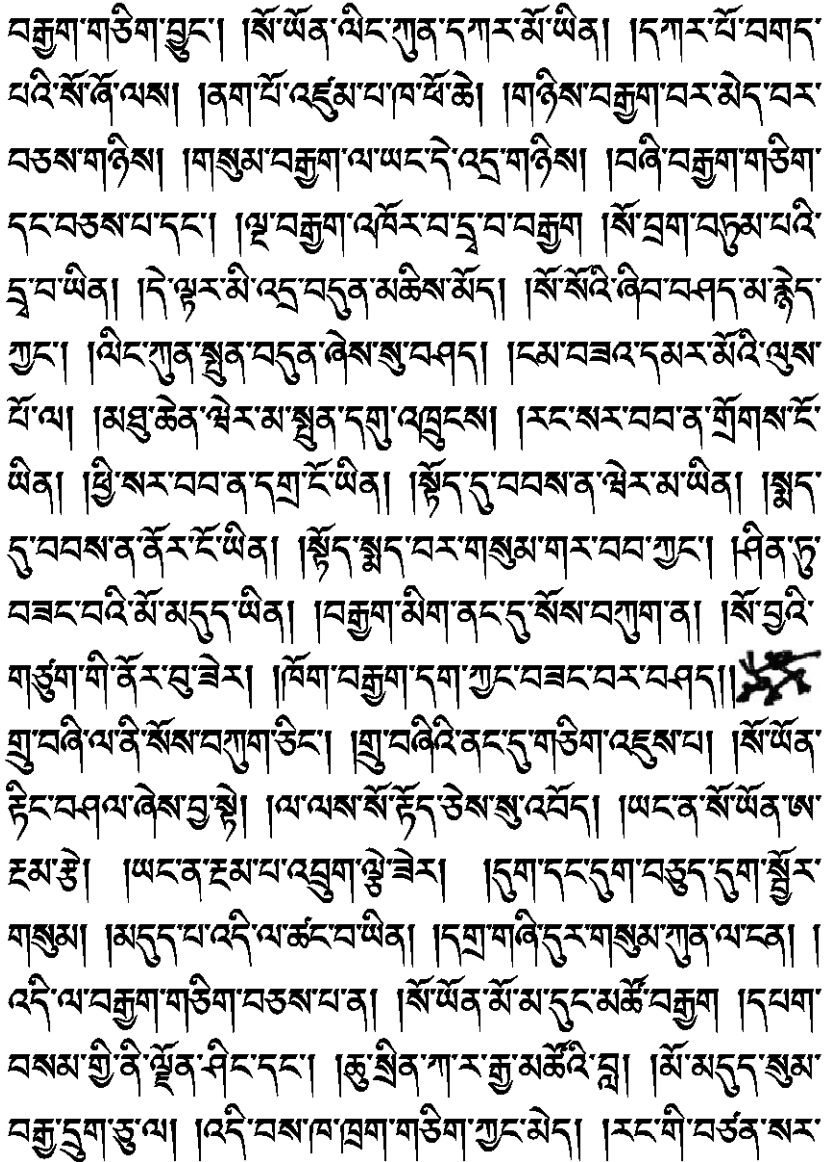 བརྒྱག་གཅིག་བྱུང་། །སོ་ཡོན་ལིང་ཀུན་དཀར་མོ་ཡིན། །དཀར་པོ་བགད་
པའི་སོ་ཞོ་ལས། །ནག་པོ་འཛུམ་པ་ཁ་ཕོ་ཆེ། །གཉིས་བརྒྱག་བར་མེད་བར་
བཅས་གཉིས། །གསུམ་བརྒྱག་ལ་ཡང་དེ་འདྲ་གཉིས། །བཞི་བརྒྱག་གཅིག་
དང་བཅས་པ་དང་། །ལྔ་བརྒྱག་འཁོར་བ་དྲྭ་བ་བརྒྱག །སོ་བྲག་བཏུམ་པའི་
དྲྭ་བ་ཡིན། །དེ་ལྟར་མི་འདྲ་བདུན་མཆིས་མོད། །སོ་སོའི་ཞིབ་བཤད་མ་རྙེད་
ཀྱང་། །ལིང་ཀུན་སྤུན་བདུན་ཞེས་སུ་བཤད། །ངམ་བཟའ་དམར་མོའི་ལུས་
པོ་ལ། །མཐུ་ཆེན་ཝེར་མ་སྤུན་དགུ་འཁྲུངས། །རང་སར་བབ་ན་གྲོགས་ངོ་
ཡིན། །ཕྱི་སར་བབ་ན་དགྲ་ངོ་ཡིན། །སྟོད་དུ་བབས་ན་ཝེར་མ་ཡིན། །སྨད་
དུ་བབས་ན་ནོར་ངོ་ཡིན། །སྟོད་སྨད་བར་གསུམ་གར་བབ་ཀྱང་། །ཤིན་ཏུ་
བཟང་བའི་མོ་མདུད་ཡིན། །བརྒྱག་མིག་ནང་དུ་སོས་བཀུག་ན། །སོ་བྱའི་
གཙུག་གི་ནོར་བུ་ཟེར། །ཁོག་བརྒྱག་དག་ཀྱང་བཟང་བར་བཤད།།
གྲུ་བཞི་ལ་ནི་སོས་བཀུག་ཅིང་། །གྲུ་བཞིའི་ནང་དུ་གཅིག་འཇུས་པ། །སོ་ཡོན་
རྟིང་བཤལ་ཞེས་བྱ་སྟེ། །ལ་ལས་སོ་རྟོད་ཅེས་སུ་འབོད། །ཡང་ན་སོ་ཡོན་ཨ་
རྔམ་རྩེ། །ཡང་ན་རྔམ་པ་འབྲུག་ལྕེ་ཟེར། །དུག་དང་དུག་བཅུད་དུག་སྦྱོར་
གསུམ། །མདུད་པ་འདི་ལ་ཚང་བ་ཡིན། །དགྲ་གཞི་དུར་གསུམ་ཀུན་ལ་ངན། །
འདི་ལ་བརྒྱག་གཅིག་བཅས་པ་ན། །སོ་ཡོན་མོ་མ་དུང་མཚོ་བརྒྱག །དཔག་
བསམ་གྱི་ནི་ལྗོན་ཤིང་དང་། །ཆུ་སྲིན་ཀ་ར་རྒྱ་མཚོའི་བླ། །མོ་མདུད་སུམ་
བརྒྱ་དྲུག་ཅུ་ལ། །འདི་བས་ཁ་ཁྲག་གཅིག་ཀྱང་མེད། །རང་གི་བཙན་སར་